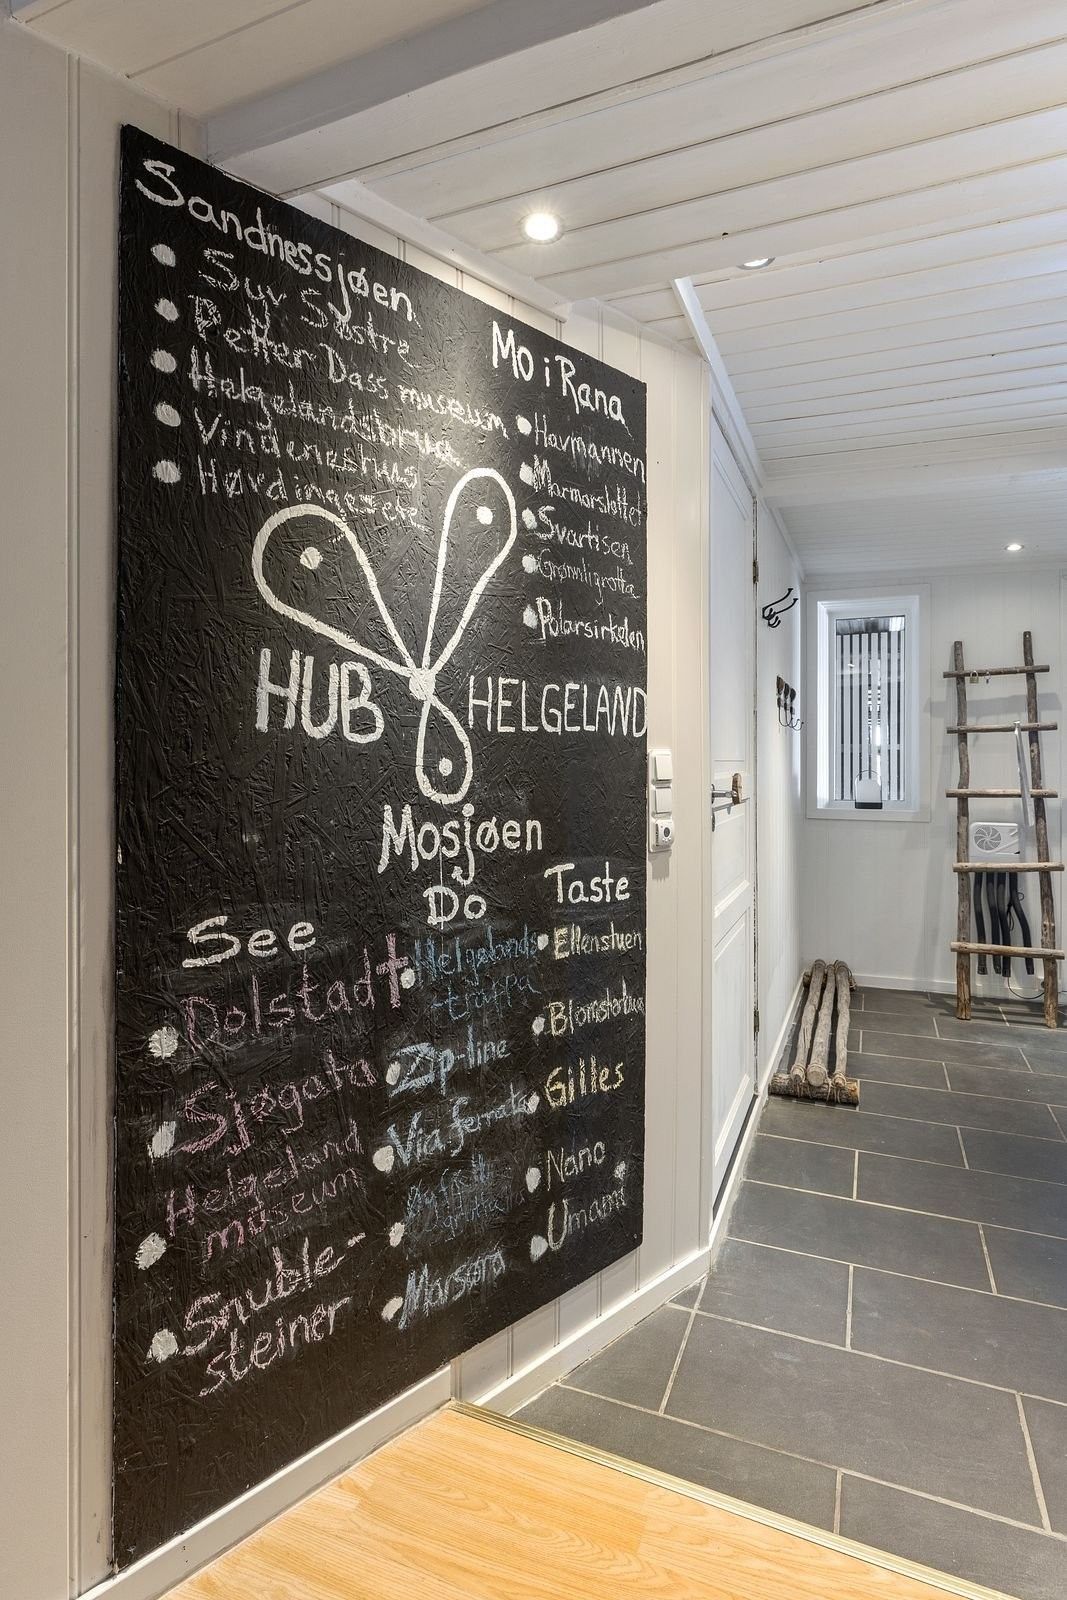 Sandnessjøen
Syv Søstre
Petter Dass museum
Helgelandsbrua
Vindeneshus
Høvdingesete
Mo i Rana
Havmannen
Marmorslottet
Svartisen
Grønnligrotta
Polarsirkelen
HUB HELGELAND
Mosjøen
See
Dolstad
Sjøgata
Helgeland
museum
Snuble-
steiner
Do
Helgelands
-trappa
Zip-line
Via ferrata
grotta
Marsøra
Taste
Ellenstuen
Blomsterbua
Gilles
Nano
Umami